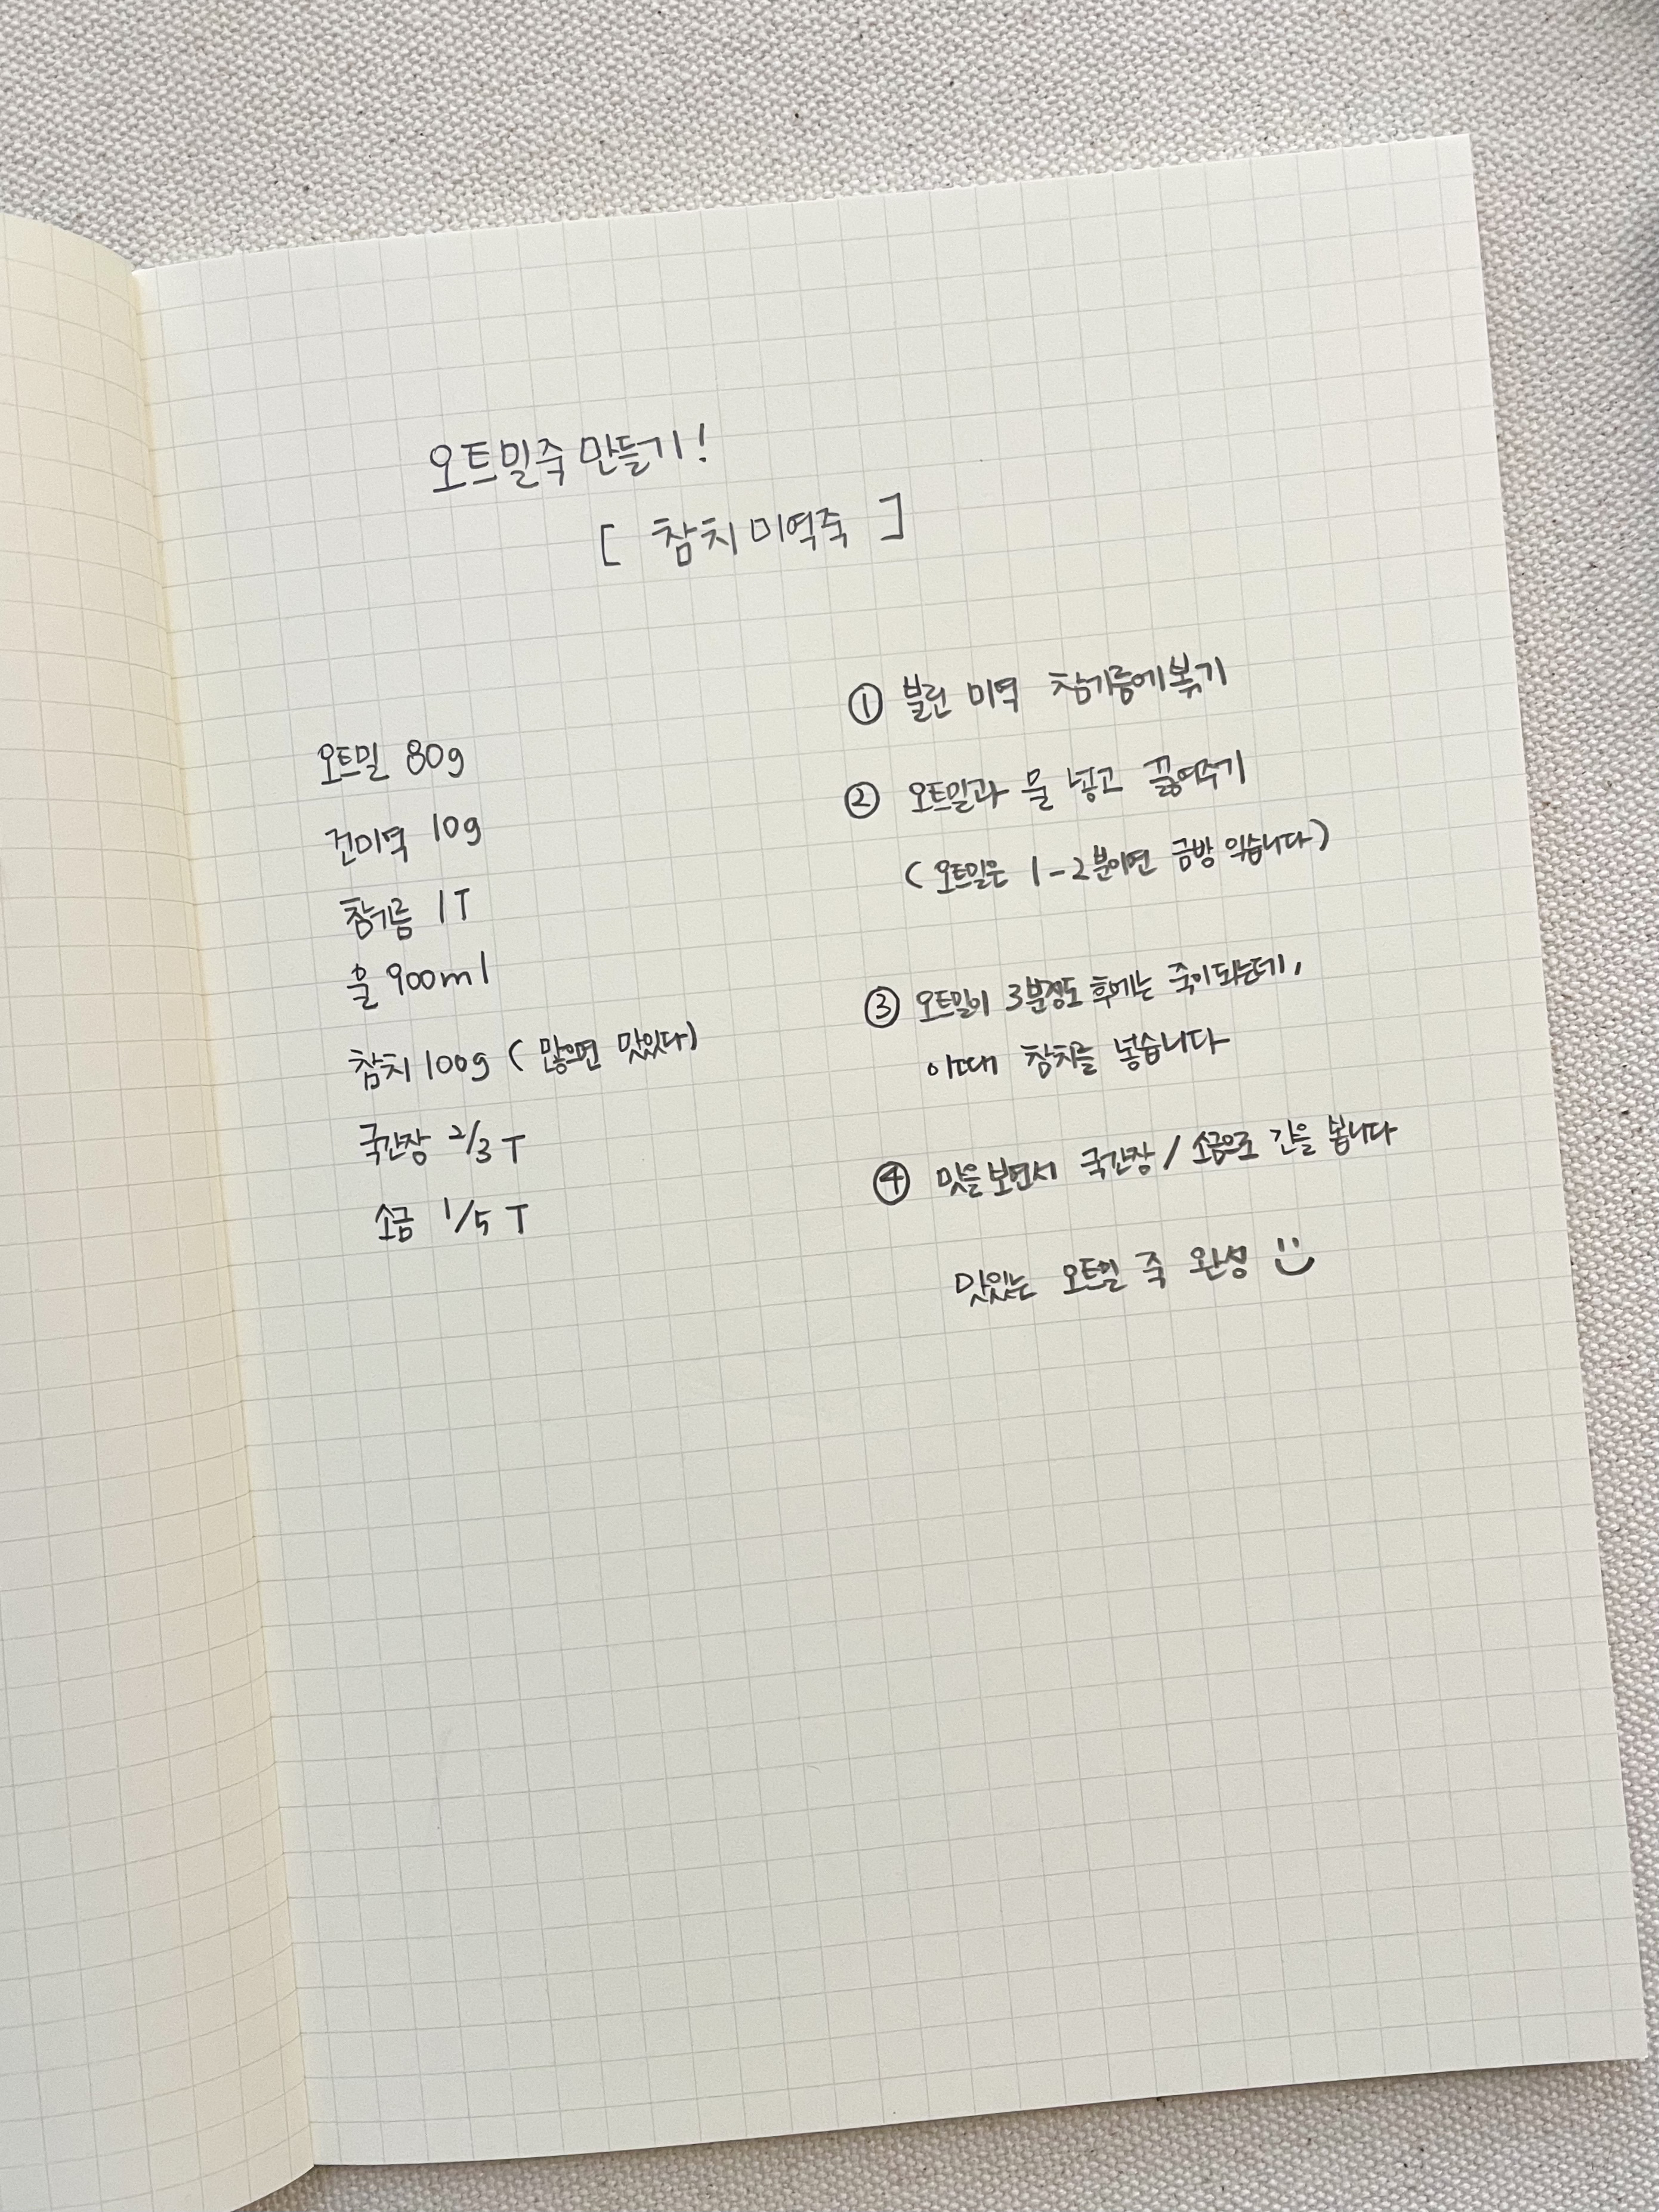 오트밀죽 만들기!
[ 참치 미역죽 ]
오트밀 80g
건미역 10g
참기름 1T
물 900ml
참치 100g ( 많으면 맛있다)
국간장 2/3 T
소금 1/5 T
① 불린 미역 참기름에 볶기
② 오트밀과 물 넣고 끓여주기
( 오트밀은 1-2분이면 금방 익습니다)
③ 오트밀이 3분정도 후에는 죽이 되는데,
이때 참치를 넣습니다
④ 맛을 보면서 국간장 / 소금으로 간을 봅니다
맛있는 오트밀 죽 완성